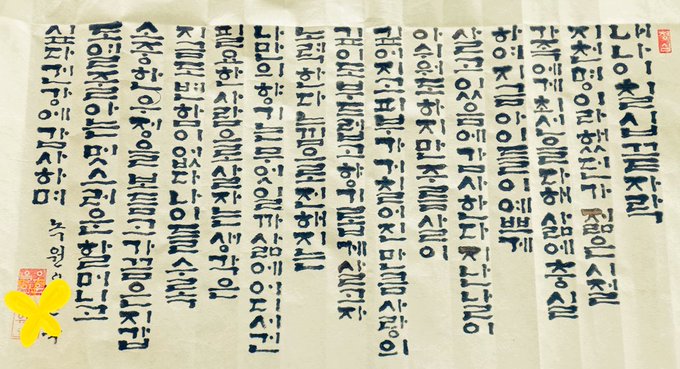 내나이 칠십 끝자락
지천명이라 했던가 젊은 시절
가족에게 헌신을 다해 삶에 충실
하여 지금 아이들이 예쁘게
살고 있음에 감사한다 지난날이
아쉬워도 하지만 주름살이
깊어지고 피부가 거칠어진 만큼 사랑의
깊이로 보드랍고 향기롭게 살고자
노력한다 느낌으로 전해지는
나만의 향기는 무엇일까 삶에 어디서건
필요한 사람으로 살자는 생각은
지금도 변함이 없다 나이들수록
소중한 인정을 보듬고 가끔은 지갑
도 열줄 아는 멋스러운 할머니고
싶다 건강에 감사하며 녹원